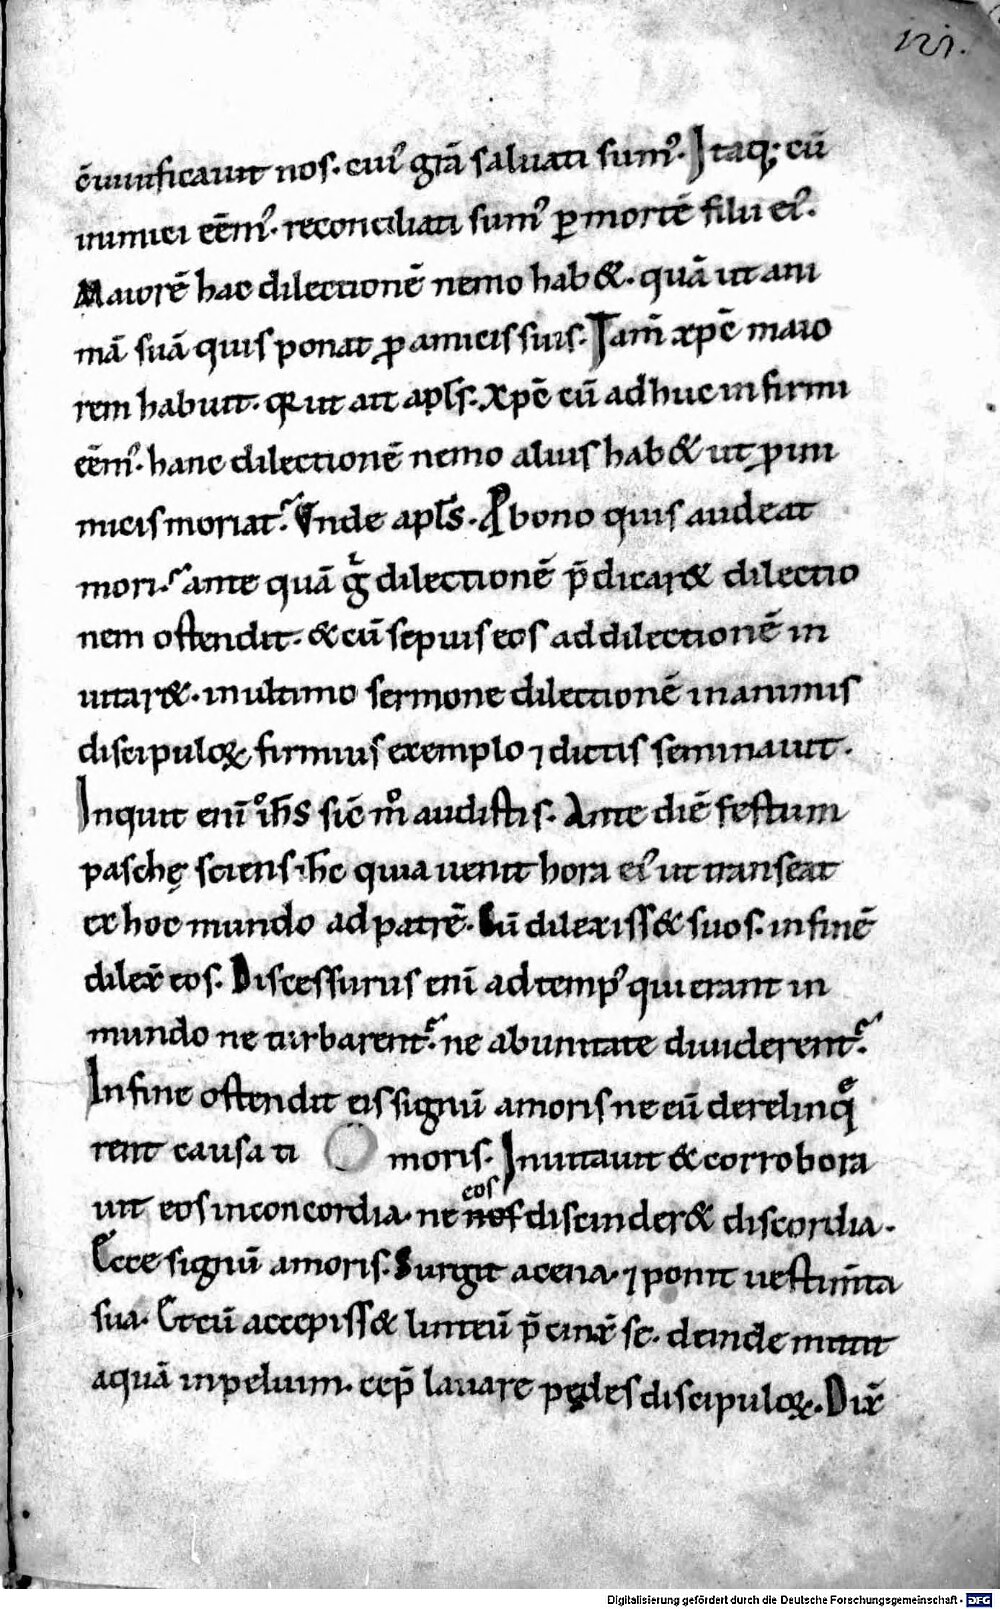 121.
c̄uiuificauit nos. cui᾽ grā saluati sum᾽. Itaq; cū
inimici eēm᾽. reconciliati sum᾽ ꝑ mortē filii ei᾽.
Maiorē hac dilectionē nemo hab&. quā ut ani
mā suā quis ponat ꝓ amicis suis. Tam̄ xp̄c maio
rem habuit. q̄ ut ait apl̄s. Xp̄c cū adhuc infirmi
eēm᾽. hanc dilectionē nemo alius hab& ut ꝓ ini
micis moriat᾽. Vnde apl̄s. P bono quis audeat
mori. ante quā g̊ dilectionē p̄dicar& dilectio
nem ostendit. & cū sepius eos ad dilectionē in
uitar&. in ultimo sermone dilectionē in animis
discipuloꝝ firmius exemplo ⁊ dictis seminauit.
Inquit eni̅ iōh̄s sic̄ m̊ audistis. Ante diē festum
paschę sciens ih̄c quia uenit hora ei᾽ ut transeat
ex hoc mundo ad patrē. Cū dilexiss& suos. in finē
dilex̄ eos. Discessurus eni̅ ad temp᾽ qui erant in
mundo ne turbarent᾽. ne ab unitate diuiderent᾽.
In fine ostendit eis signū amoris ne eū derelinqͤ
rent causa ti moris. Inuitauit & corrobora
uit eos in concordia. ne nos eos discinder& discordia.
Ecce signū amoris. Surgit a cena. ⁊ ponit uestim̄ta
sua. Et cū accepiss& linteū p̄cinx̄ se. deinde mittit
aquā in peluim. cep̄ lauare pędes discipuloꝝ. Dix̄
Digitalisierung gefördert durch die Deutsche Forschungsgemeinschaft - DFG